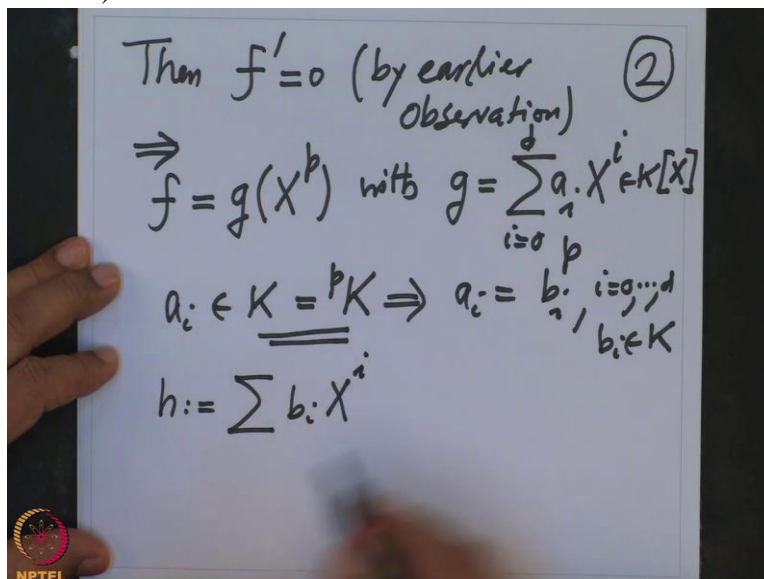 Then f' = 0 (by earlier ②
observation)
⇒
f = g(X^p) with g = \sum_{i=0}^{d} a_i X^i ∈ K[X]
a_i ∈ K = ^pK ⇒ a_i = b_i^p, i=0,...,d
b_i ∈ K
h := ∑ b_i X^i
NPTEL